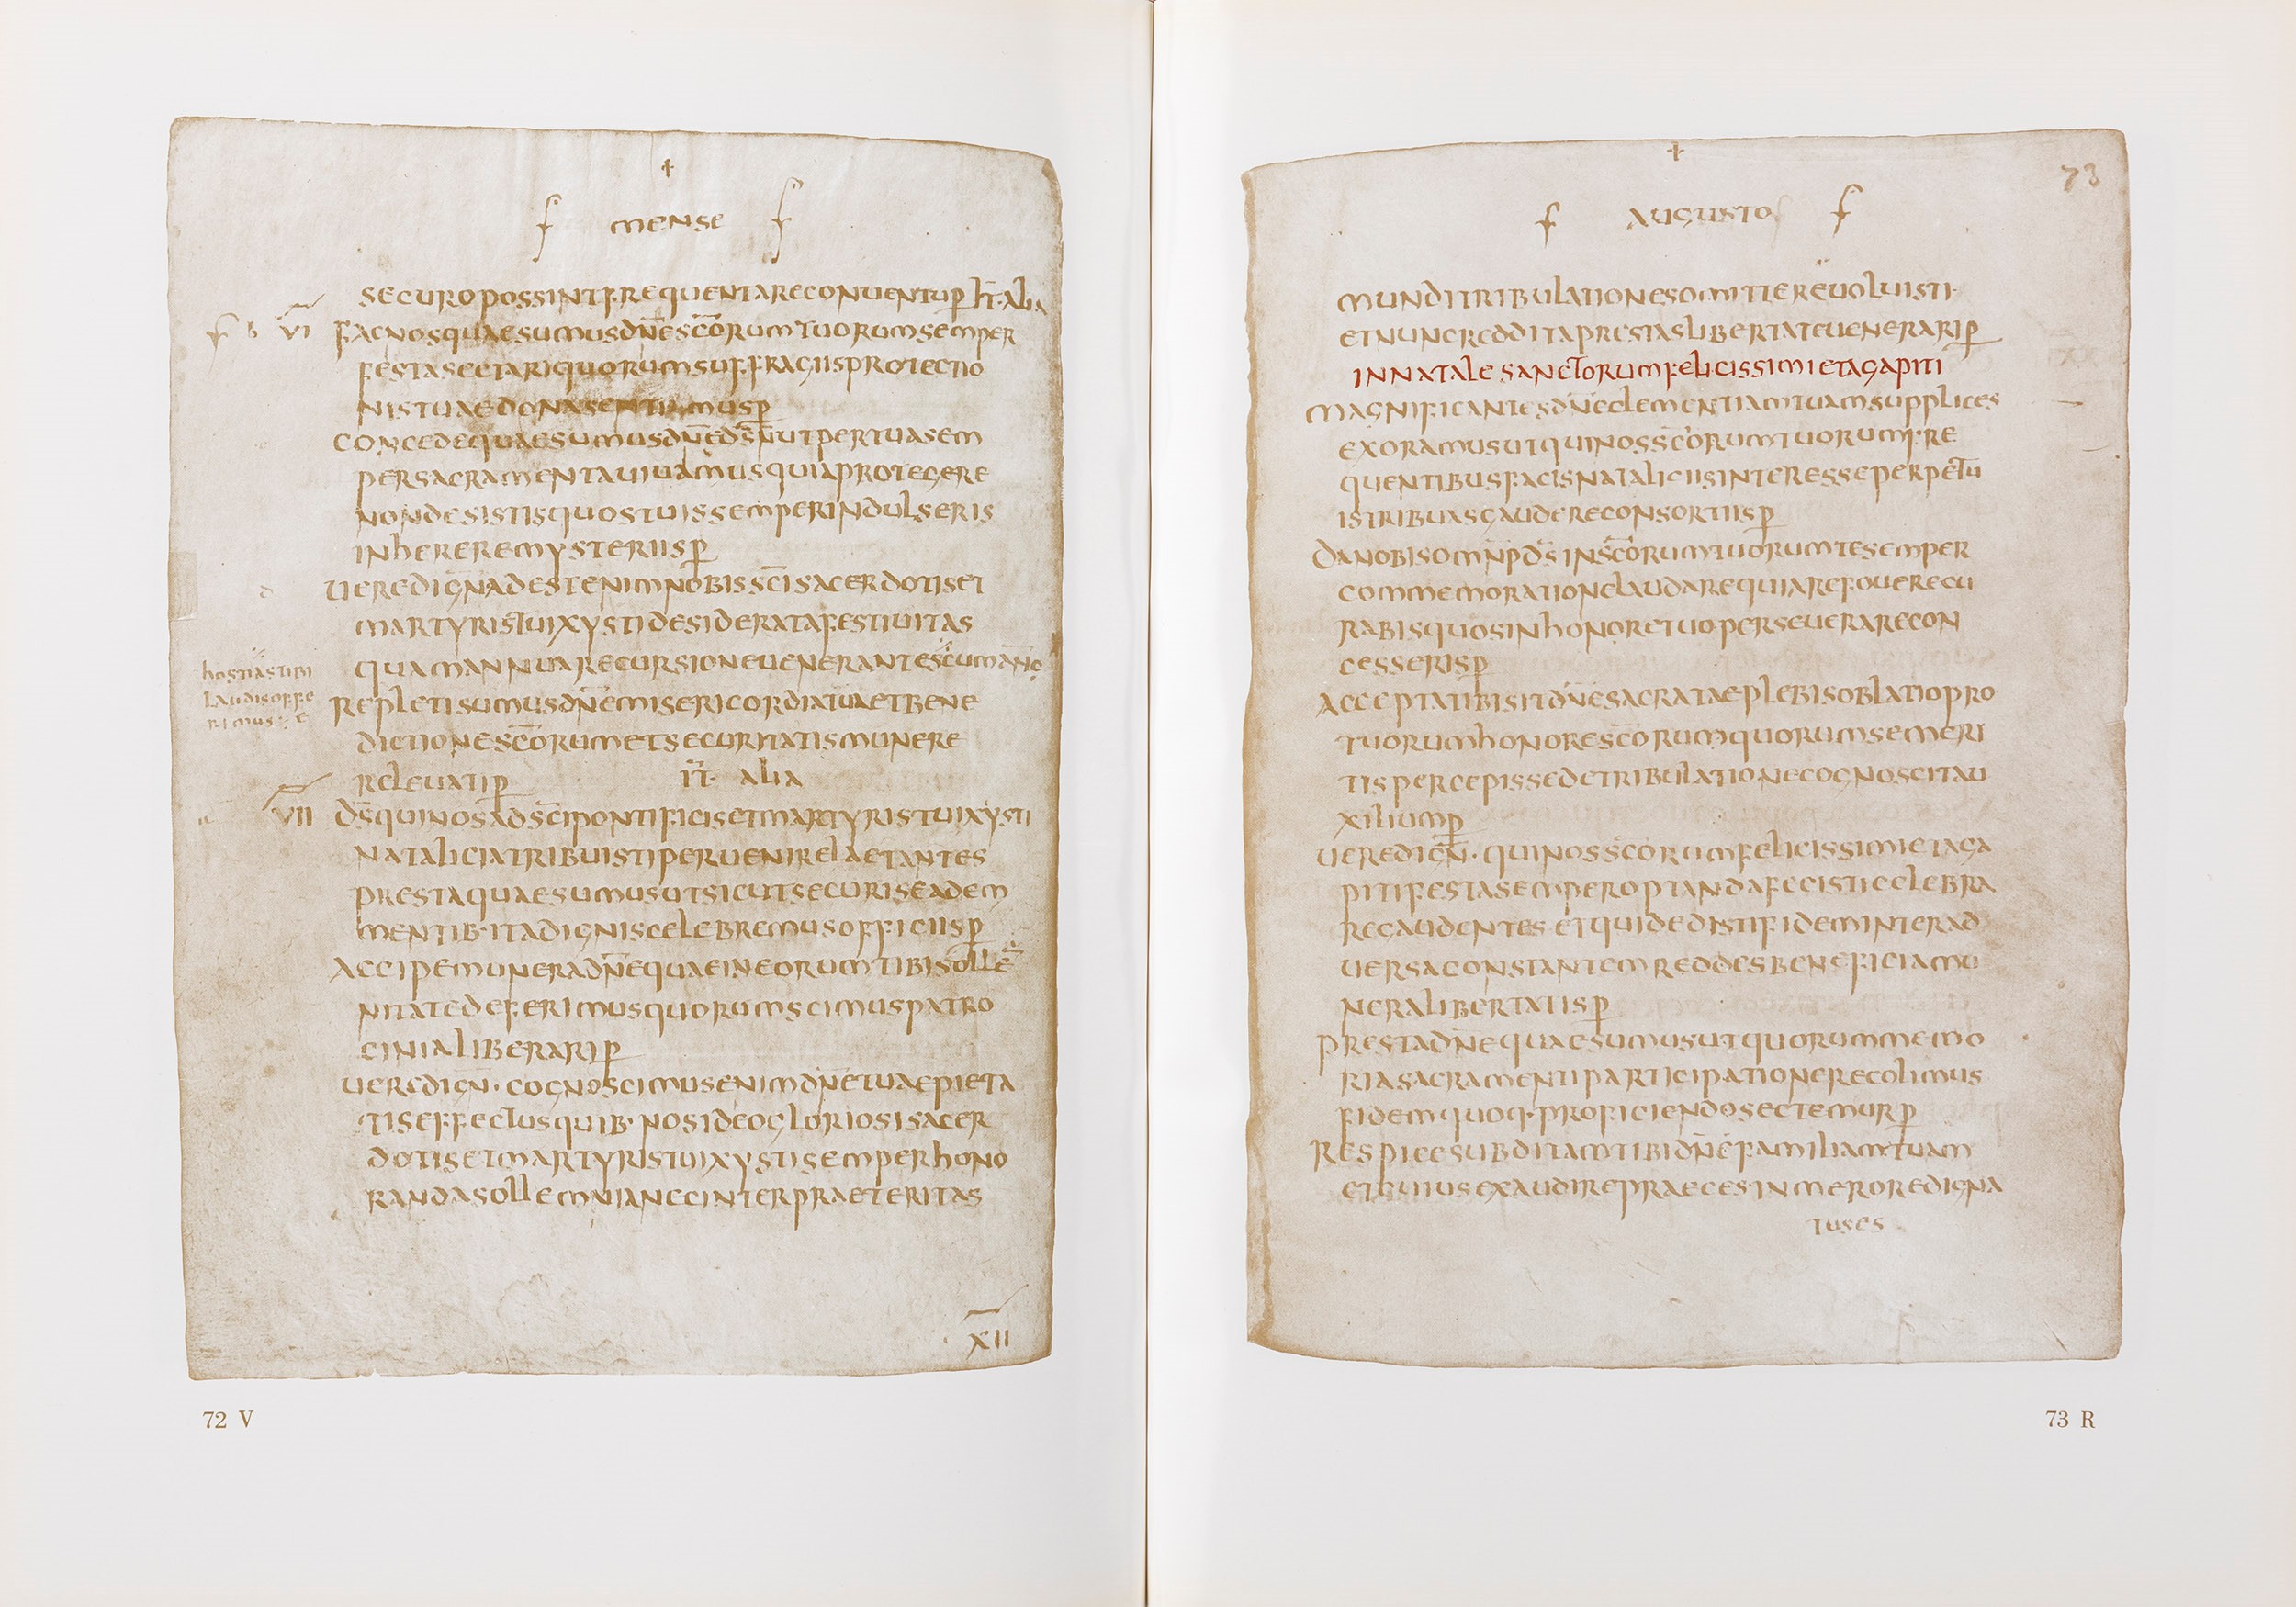 mense
securopossintfrequentareconuentup̄ IT·alia
VI facnosquaesumusdn̄esc̄orumtuorumsemper
festasectariquorumsuffragiisprotectio
nistuaedonasentiamusp̄
concedequaesumusdn̄ed̄sn̄utpertuasem
persacramentauiuamusquiaprotegere
nondesistisquostuissemperindulseris
inhereremysteriisp̄
ueredign̄adestenimnobissc̄isacerdotiset
martyristuixystidesideratafestiuitas
quamannuarecursioneuenerantes
hostiastibi
laudisoffe
rimus
repletisumusdn̄emisericordiatuaetbene
dictionesc̄orumetsecuritatismunere
releuatip̄ IT· alia
VII d̄squinosadsc̄ipontificisetmartyristuixysti
nataliciatribuistiperuenirelaetantes
prestaquaesumusutsicutsecuriseadem
mentib·itadigniscelebremusofficiisp̄
accipemuneradn̄equaeineorumtibisolle
nitatedeferimusquorumscimuspatro
cinialiberarip̄
ueredign̄·cognoscimusenimdn̄etuaepieta
tiseffectusquib·nosideogloriosisacer
dotisetmartyristuixystisemperhono
randasollemnianecinterpraeteritas
XII
72 V
73
augusto
munditribulationesomittereuoluisti·
etnuncredditaprestaslibertateuenerarip̄
innatalesanctorumfelicissimietagapiti
magnificantesdn̄eclementiamtuamsupplices
exoramusutquinossc̄orumtuorumfre
quentibusfacisnataliciisinteresseperpetu
istribuasgaudereconsortiisp̄
danobisomn̄pd̄sinsc̄orumtuorumtesemper
commemorationelaudarequiarefouerecu
rabisquosinhonoretuoperseuerarecon
cesserisp̄
acceptatibisitdn̄esacrataeplebisoblatiopro
tuorumhonoresc̄orumquorumsemeri
tispercepissedetribulationecognoscitau
xiliump̄
ueredign̄·quinossc̄orumfelicissimietaga
pitifestasemperoptandafecisticelebra
regaudentes·etquidedistifideminterad
uersaconstantemreddesbeneficiamu
neralibertatisp̄
prestadn̄equaesumusutquorummemo
riasacramentiparticipationerecolimus
fidemquoq·proficiendosectemurp̄
respicesubditamtibidn̄efamiliamtuam
etcuiusexaudirepraecesinmeroredigna
tuses
73 R